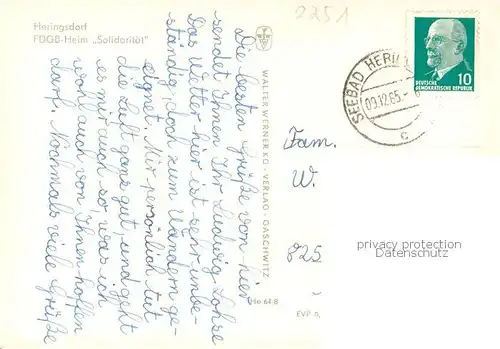 2251
Heringsdorf
FDGB-Heim „Solidarität"
Die besten Grüße von hier
sendet Ihnen Ihr Ludwig Lohse
Das Wetter hier ist sehr unbe-
ständig, doch zum Wandern ge-
eignet. Mir persönlich tut
die Luft ganz gut, und geht
es mir auch so, was ich
wohl auch von Ihnen hoffen
darf. Nochmals viele Grüße
WALTER WERNER KG · VERLAG · GASCHWITZ
He 64/8
EVP 0,
SEEBAD HERI
09.12.65.-
c
10
DEUTSCHE
DEMOKRATISCHE REPUBLIK
Fam.
W.
825
privacy protection
Datenschutz